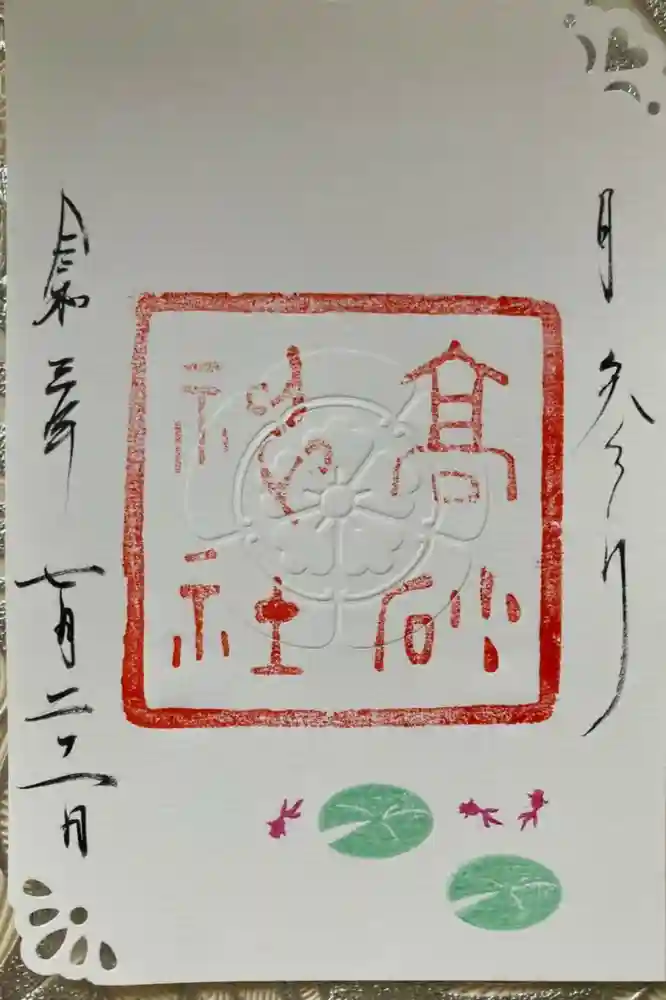 月参り
髙砂
神社
令和三年七月二十一日